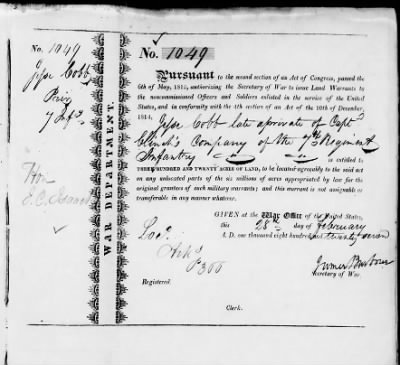 No. 1049
Jesse Cobb
Priv
7 Inf.
For
WAR DEPARTMENT.
No. 1049
Pursuant to the second section of an Act of Congress, passed the
6th of May, 1812, authorizing the Secretary of War to issue Land Warrants to
the noncommissioned Officers and Soldiers enlisted in the service of the United
States, and in conformity with the 4th section of an Act of the 10th of December,
1814, Jesse Cobb late a private of Capt
Clinch's Company of the 7th Regiment
Infantry is entitled to
THREE HUNDRED AND TWENTY ACRES OF LAND, to be located agreeably to the said act
on any unlocated parts of the six millions of acres appropriated by law for the
original grantees of such military warrants; and this warrant is not assignable or
transferable in any manner whatever.
GIVEN at the War Office of the United States,
this 28th day of February
A. D. one thousand eight hundred and twenty seven
Loc.
Arks
P 300
James Barbour
Secretary of War.
Registered.
Clerk.